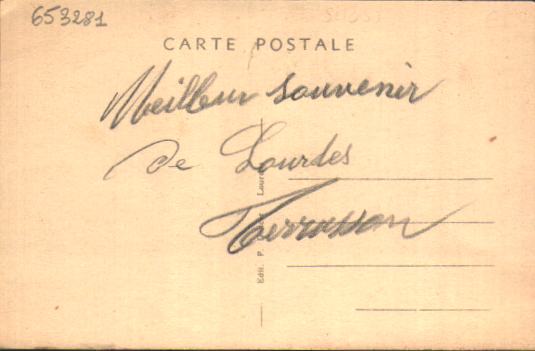 653281
CARTE POSTALE
Meilleur souvenir
de Lourdes
Terrasson
Edit. P.